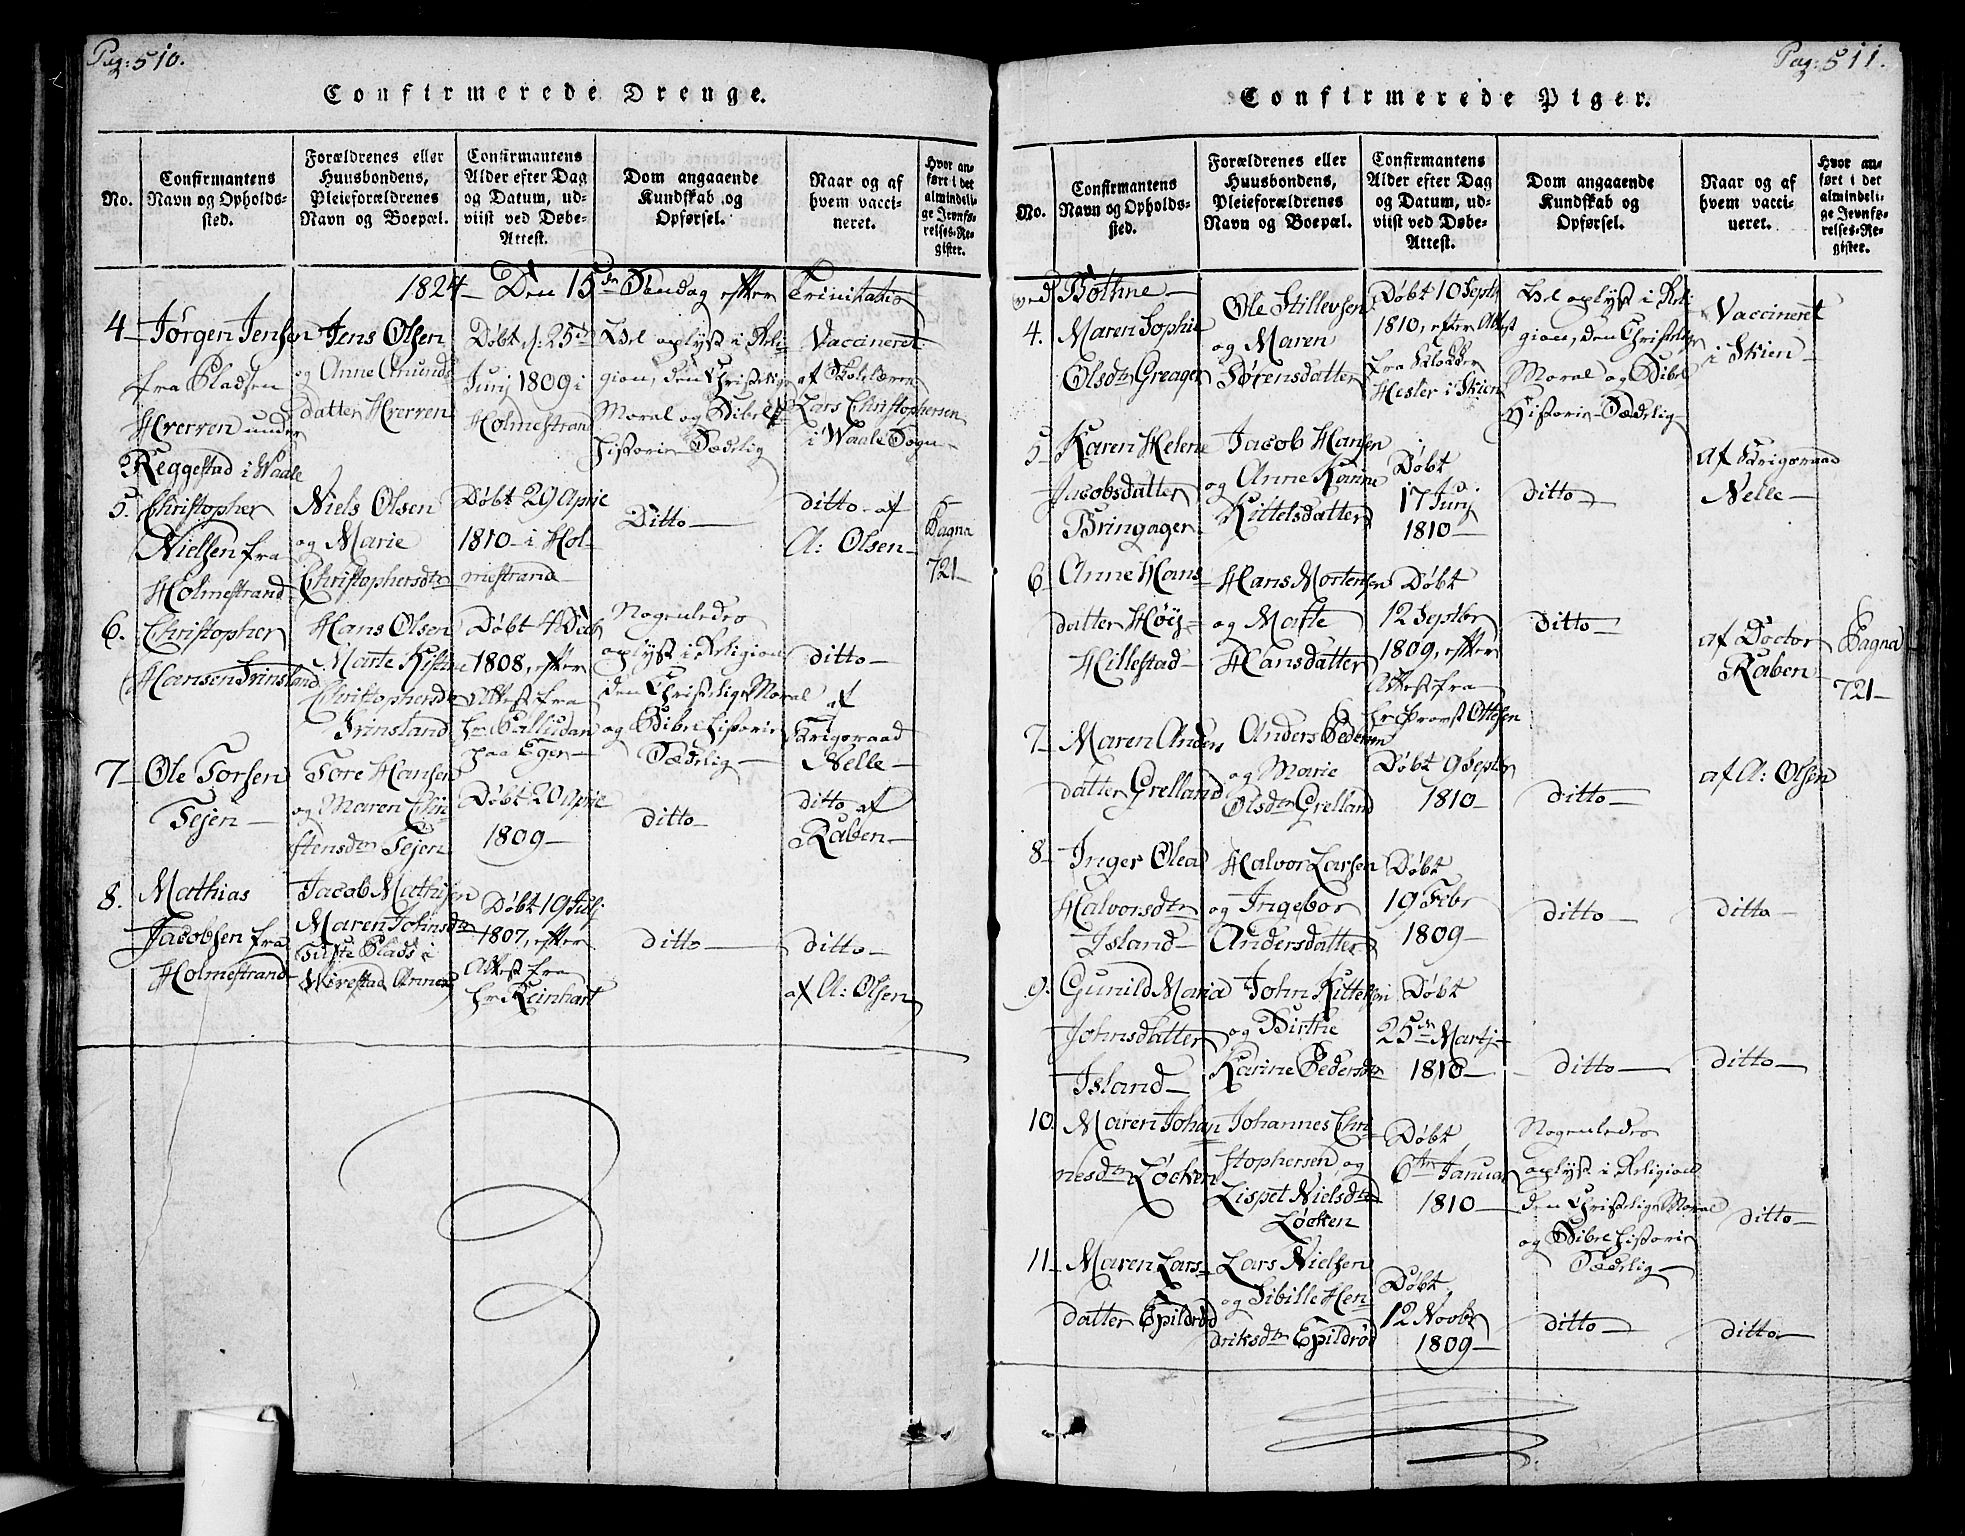 Pag: 510.
Confirmerede Drenge.
No.
Confirmantens Navn og Opholds-sted.
Forældrenes eller Huusbondens, Pleieforældrenes Navn og Boepæl.
Confirmantens Alder efter Dag og Datum, udviist ved Døbe-Attest.
Dom angaaende Kundskab og Opførsel.
Naar og af hvem vaccineret.
Hvor anført i det almindelige Jevnførelses-Register.
1824 Den 15de Søndag efter Trinitatis
4 Jørgen Jensen
fra Pladsen
Hverven under
Reggestad i Waale
Jens Olsen
og Anne Amunds
datter Hverven
Døbt d: 25de
Junj 1809 i
Holmestrand
Vel oplyst i Reli
gion, den Christelige
Moral og Bibel
historie Sædelig
Vaccineret
af Skolelærer
Lars Christophersen
i Waale Sogn
5. Christopher
Nielsen fra
Holmestrand
Niels Olsen
og Marie
Christophersdtr
Døbt 29 April
1810 i Hol
mestrand
Ditto
ditto af
A: Olsen
Bagna
721
6. Christopher
Hansen Frinsland
Hans Olsen
Marte Kistine
Christophersdtr
Frinsland
Døbt 4 Decb
1808, efter
Attest fra
Hr Palludan
paa Eger
Nogenledes
oplyst i Religion
den Christelige Moral
og Bibelhistorie
Sædelig
ditto
af
Krigsraad
Nelle
7 Ole Torsen
Tejen
Tore Hansen
og Maren Chri
stensdtr Tejen
Døbt 20 April
1809
ditto
ditto af
Raben
8. Mathias
Jacobsen fra
Holmestrand
Jacob Mathisen
Maren Johnsdtr
Tufte Plads i
Wivestad Annex
Døbt 19 Julj
1807, efter
Attest fra
Hr Reinhart
ditto
ditto
af A: Olsen
Pag: 511.
Confirmerede Piger.
No.
Confirmantens Navn og Opholds-sted.
Forældrenes eller Huusbondens, Pleieforældrenes Navn og Boepæl.
Confirmantens Alder efter Dag og Datum, udviist ved Døbe-Attest.
Dom angaaende Kundskab og Opførsel.
Naar og af hvem vaccineret.
Hvor anført i det almindelige Jevnførelses-Register.
ved Bothne
4. Maren Sophie
Olsdtr Greager
Ole Stillevsen
og Maren
Sørensdatter
Døbt 10 Septb
1810, efter Attest
fra Klokker
Hesler i Skien
Vel oplyst i Reli
gion, den Christelige
Moral og Bibel
Historie Sædelig
Vaccineret
i Skien
5 Karen Helene
Jacobsdatter
Bringager
Jacob Hansen
og Anne Karine
Kittelsdatter
Døbt
17 Junj
1810
ditto
af Krigsraad
Nelle
6 Anne Hans
datter Høij
Hillestad
Hans Mortensen
og Marte
Hansdatter
Døbt
12 Septbr
1809, efter
Attest fra
Hr Provst Ottesen
ditto
af Doctor
Raben
Bagna
721
7 Maren Anders
datter Grelland
Anders Pedersen
og Marie
Olsdtr Grelland
Døbt 9 Septbr
1810
ditto
af A: Olsen
8 Inger Olea
Halvorsdtr
Island
Halvor Larsen
og Ingebor
Andersdatter
Døbt
19 Febr
1809
ditto
ditto
9. Gunild Maria
Johnsdatter
Island
John Kittelsen
og Birthe
Karine Pedersdtr
Døbt
25de Martj
1810
ditto
ditto
10. Maren Johan
nesdtr Løcken
Johannes Chri
stophersen og
Lispet Nielsdtr
Løcken
Døbt
6te Januar
1810
Nogenledes
oplyst i Religion
den Christelige Moral
og Bibelhistorie
Sædelig
ditto
11 Maren Lars
datter Epildrød
Lars Nielsen
og Sibille Hen
driksdtr Epildrød
Døbt
12 Novbr
1809
ditto
ditto